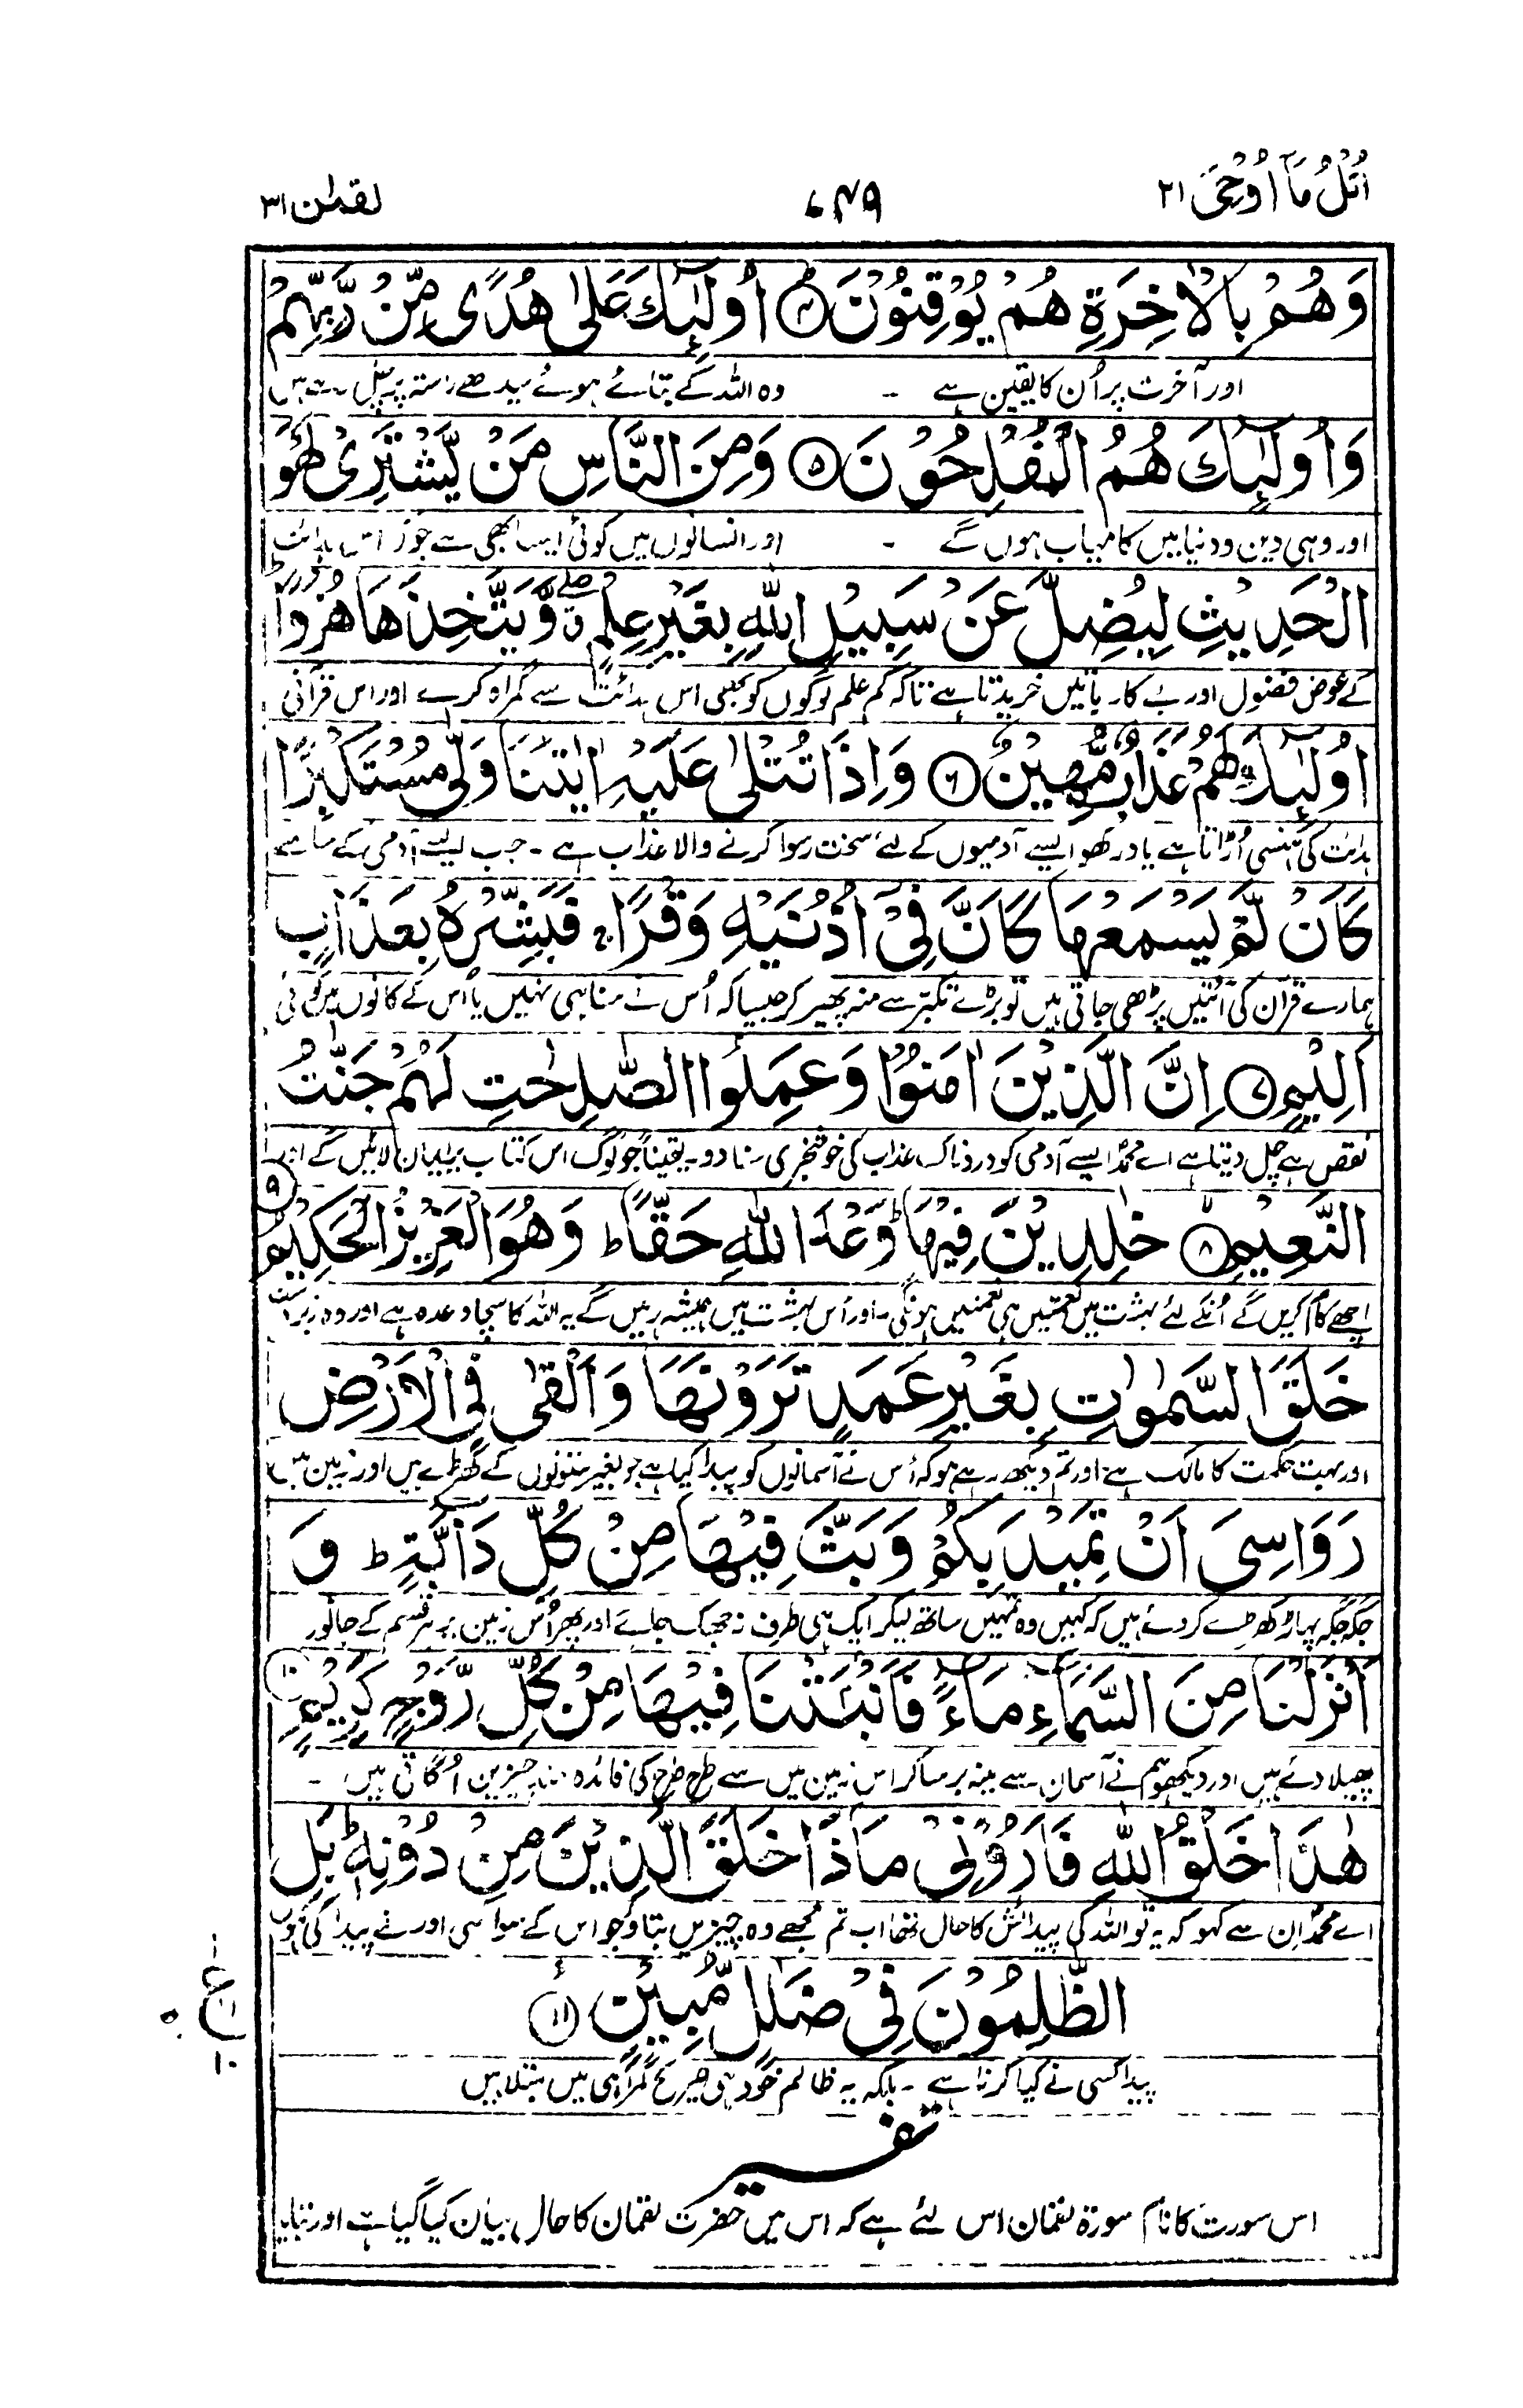 اُتْلُ مَآ اُوْحِيَ ۲۱
۷۴۹
لقمٰن ۳۱
وَهُمْ بِالْاٰخِرَةِ هُمْ يُوْقِنُوْنَ ۴ اُولٰٓئِكَ عَلٰى هُدًى مِّنْ رَّبِّهِمْ
اور آخرت پر اُن کا یقین ہے ۔ وہ اللہ کے بتائے ہوئے سیدھے راستہ پر چل رہے ہیں
وَاُولٰٓئِكَ هُمُ الْمُفْلِحُوْنَ ۵ وَمِنَ النَّاسِ مَنْ يَّشْتَرِيْ لَهْوَ
اور وہی دین و دنیا میں کامیاب ہوں گے ۔ اور انسانوں میں کوئی ایسا بھی ہے جو اس ہدائت
الْحَدِيْثِ لِيُضِلَّ عَنْ سَبِيْلِ اللّٰهِ بِغَيْرِ عِلْمٍ وَّيَتَّخِذَهَا هُزُوًا
کے عوض فضول اور بے کار باتیں خریدتا ہے تاکہ کم علم لوگوں کو بھی اس ہدائت سے گمراہ کرے اور اس قرآنی
اُولٰٓئِكَ لَهُمْ عَذَابٌ مُّهِيْنٌ ۶ وَاِذَا تُتْلٰى عَلَيْهِ اٰيٰتُنَا وَلّٰى مُسْتَكْبِرًا
ہدائت کی ہنسی اُڑاتا ہے یاد رکھو ایسے آدمیوں کے لئے سخت رسوا کرنے والا عذاب ہے ۔ جب ایسے آدمی کے سامنے
كَاَنْ لَّمْ يَسْمَعْهَا كَاَنَّ فِيْٓ اُذُنَيْهِ وَقْرًا ۚ فَبَشِّرْهُ بِعَذَابٍ
ہمارے قرآن کی آئتیں پڑھی جاتی ہیں تو بڑے تکبّر سے منہ پھیر کر جیسا کہ اُس نے سنا ہی نہیں یا اُس کے کانوں میں کوئی
اَلِيْمٍ ۷ اِنَّ الَّذِيْنَ اٰمَنُوْا وَعَمِلُوا الصّٰلِحٰتِ لَهُمْ جَنّٰتُ
نقص ہے چل دیتا ہے اے محمدؐ ایسے آدمی کو دردناک عذاب کی خوشخبری سنا دو ۔ یقیناً جو لوگ اس کتاب پر ایمان لائیں گے اور
النَّعِيْمِ ۸ خٰلِدِيْنَ فِيْهَا ؕ وَعْدَ اللّٰهِ حَقًّا ؕ وَهُوَ الْعَزِيْزُ الْحَكِيْمُ ۹
اچھے کام کریں گے اُنکے لئے بہشت میں نعمتیں ہی نعمتیں ہونگی ۔ اور اُس بہشت میں ہمیشہ رہیں گے یہ اللہ کا سچا وعدہ ہے اور وہ زبردست
خَلَقَ السَّمٰوٰتِ بِغَيْرِ عَمَدٍ تَرَوْنَهَا وَاَلْقٰى فِي الْاَرْضِ
اور بہت حکمت کا مالک ہے اور تم دیکھ رہے ہو کہ اُس نے آسمانوں کو پیدا کیا ہے جو بغیر ستونوں کے کھڑے ہیں اور زمین میں
رَوَاسِيَ اَنْ تَمِيْدَ بِكُمْ وَبَثَّ فِيْهَا مِنْ كُلِّ دَآبَّةٍ ؕ وَ
جگہ جگہ پہاڑ کھڑے کر دئے ہیں کہ کہیں وہ تمہیں ساتھ لیکر ایک ہی طرف نہ جھک جائے اور پھر اُس زمین پر ہر قسم کے جانور
اَنْزَلْنَا مِنَ السَّمَآءِ مَآءً فَاَنْۢبَتْنَا فِيْهَا مِنْ كُلِّ زَوْجٍ كَرِيْمٍ ۱۰
پھیلا دئے ہیں اور دیکھو ہم نے آسمان سے مینہ برسا کر اس زمین میں سے طرح طرح کی فائدہ مند چیزیں اُگائی ہیں ۔
هٰذَا خَلْقُ اللّٰهِ فَاَرُوْنِيْ مَاذَا خَلَقَ الَّذِيْنَ مِنْ دُوْنِهٖ ؕ بَلِ
اے محمدؐ اِن سے کہو کہ یہ تو اللہ کی پیدائش کا حال تھا اب تم مجھے وہ چیزیں بتاؤ جو اس کے سوا کسی اور نے پیدا کی ہوں
الظّٰلِمُوْنَ فِيْ ضَلٰلٍ مُّبِيْنٍ ۱۱
پیدا کسی نے کیا کرنا ہے ۔ بلکہ یہ ظالم خود ہی صریح گمراہی میں مبتلا ہیں
ع
۱۰
تفسیر
اس سورت کا نام سورۃ لقمان اس لئے ہے کہ اس میں حضرت لقمان کا حال بیان کیا گیا ہے اور بتایا